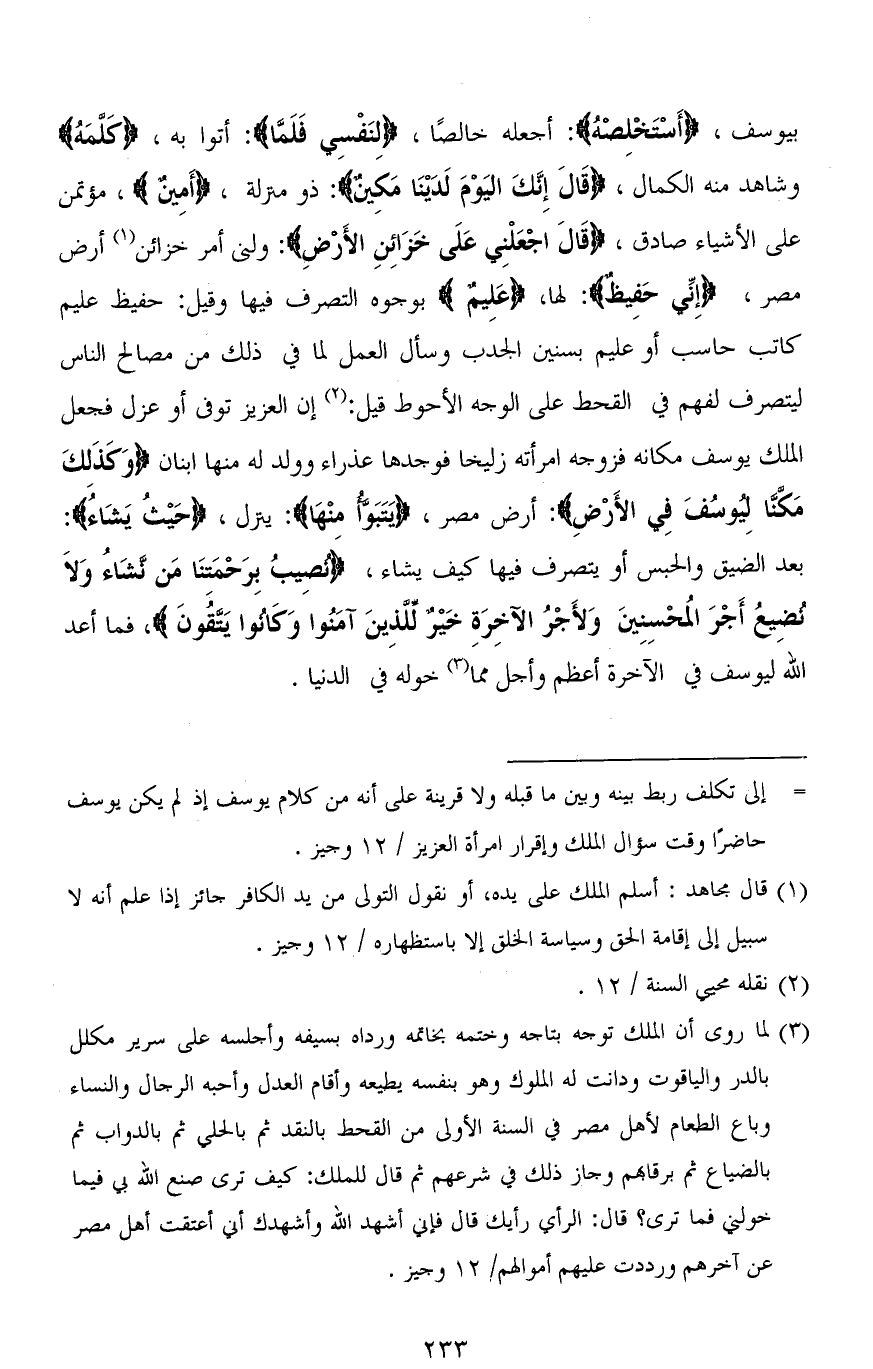 بيوسف ، ﴿أَسْتَخْلِصْهُ﴾: أجعله خالصًا ، ﴿لِنَفْسِي فَلَمَّا﴾: أتوا به ، ﴿كَلَّمَهُ﴾
وشاهد منه الكمال ، ﴿قَالَ إِنَّكَ اليَوْمَ لَدَيْنَا مَكِينٌ﴾: ذو منزلة ، ﴿أَمِينٌ ﴾ ، مؤتمن
على الأشياء صادق ، ﴿قَالَ اجْعَلْنِي عَلَى خَزَائِنِ الأَرْضِ﴾: ولنى أمر خزائن(١) أرض
مصر ، ﴿إِنِّي حَفِيظٌ﴾: لها، ﴿عَلِيمٌ ﴾ بوجوه التصرف فيها وقيل: حفيظ عليم
كاتب حاسب أو عليم بسنين الجدب وسأل العمل لما في ذلك من مصالح الناس
ليتصرف لفهم في القحط على الوجه الأحوط قيل:(٢) إن العزيز توفى أو عزل فجعل
الملك يوسف مكانه فزوجه امرأته زليخا فوجدها عذراء وولد له منها ابنان ﴿وَكَذَلِكَ
مَكَّنَّا لِيُوسُفَ فِي الأَرْضِ﴾: أرض مصر ، ﴿يَتَبَوَّأُ مِنْهَا﴾: ينزل ، ﴿حَيْثُ يَشَاءُ﴾:
بعد الضيق والحبس أو يتصرف فيها كيف يشاء ، ﴿نُصِيبُ بِرَحْمَتِنَا مَن نَّشَاءُ وَلاَ
نُضِيعُ أَجْرَ الُمحْسِنِينَ وَلأَجْرُ الآخِرَةِ خَيْرٌ لِّلَّذِينَ آمَنُوا وَكَانُوا يَتَّقُونَ ﴾، فما أعد
الله ليوسف في الآخرة أعظم وأجل مما(٣) خوله في الدنيا .
= إلى تكلف ربط بينه وبين ما قبله ولا قرينة على أنه من كلام يوسف إذ لم يكن يوسف
حاضرًا وقت سؤال الملك وإقرار امرأة العزيز / ١٢ وجيز .
(١) قال مجاهد : أسلم الملك على يده، أو نقول التولى من يد الكافر جائز إذا علم أنه لا
سبيل إلى إقامة الحق وسياسة الخلق إلا باستظهاره / ١٢ وجيز .
(٢) نقله محيي السنة / ١٢ .
(٣) لما روى أن الملك توجه بتاجه وختمه بخاتمه ورداه بسيفه وأجلسه على سرير مكلل
بالدر والياقوت ودانت له الملوك وهو بنفسه يطيعه وأقام العدل وأحبه الرجال والنساء
وباع الطعام لأهل مصر في السنة الأولى من القحط بالنقد ثم بالحلي ثم بالدواب ثم
بالضياع ثم برقابهم وجاز ذلك في شرعهم ثم قال للملك: كيف ترى صنع الله بي فيما
خولني فما ترى؟ قال: الرأي رأيك قال فإني أشهد الله وأشهدك أني أعتقت أهل مصر
عن آخرهم ورددت عليهم أموالهم/ ١٢ وجيز .
٢٣٣